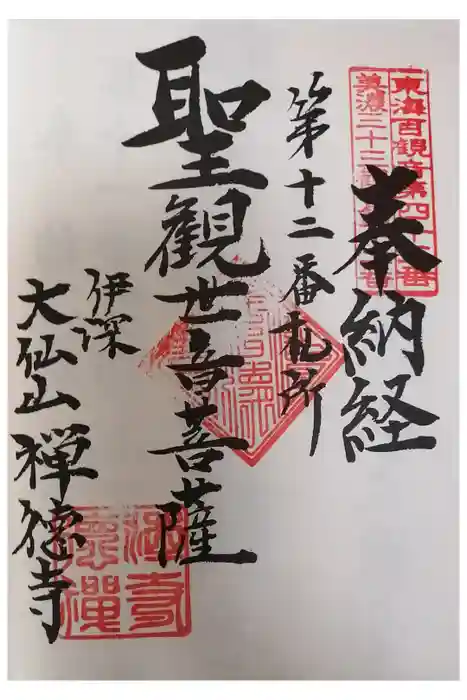 東海百観音第四十
美濃三十三
奉納経
第十二番札所
聖観世音菩薩
伊深
大仙山禅徳寺